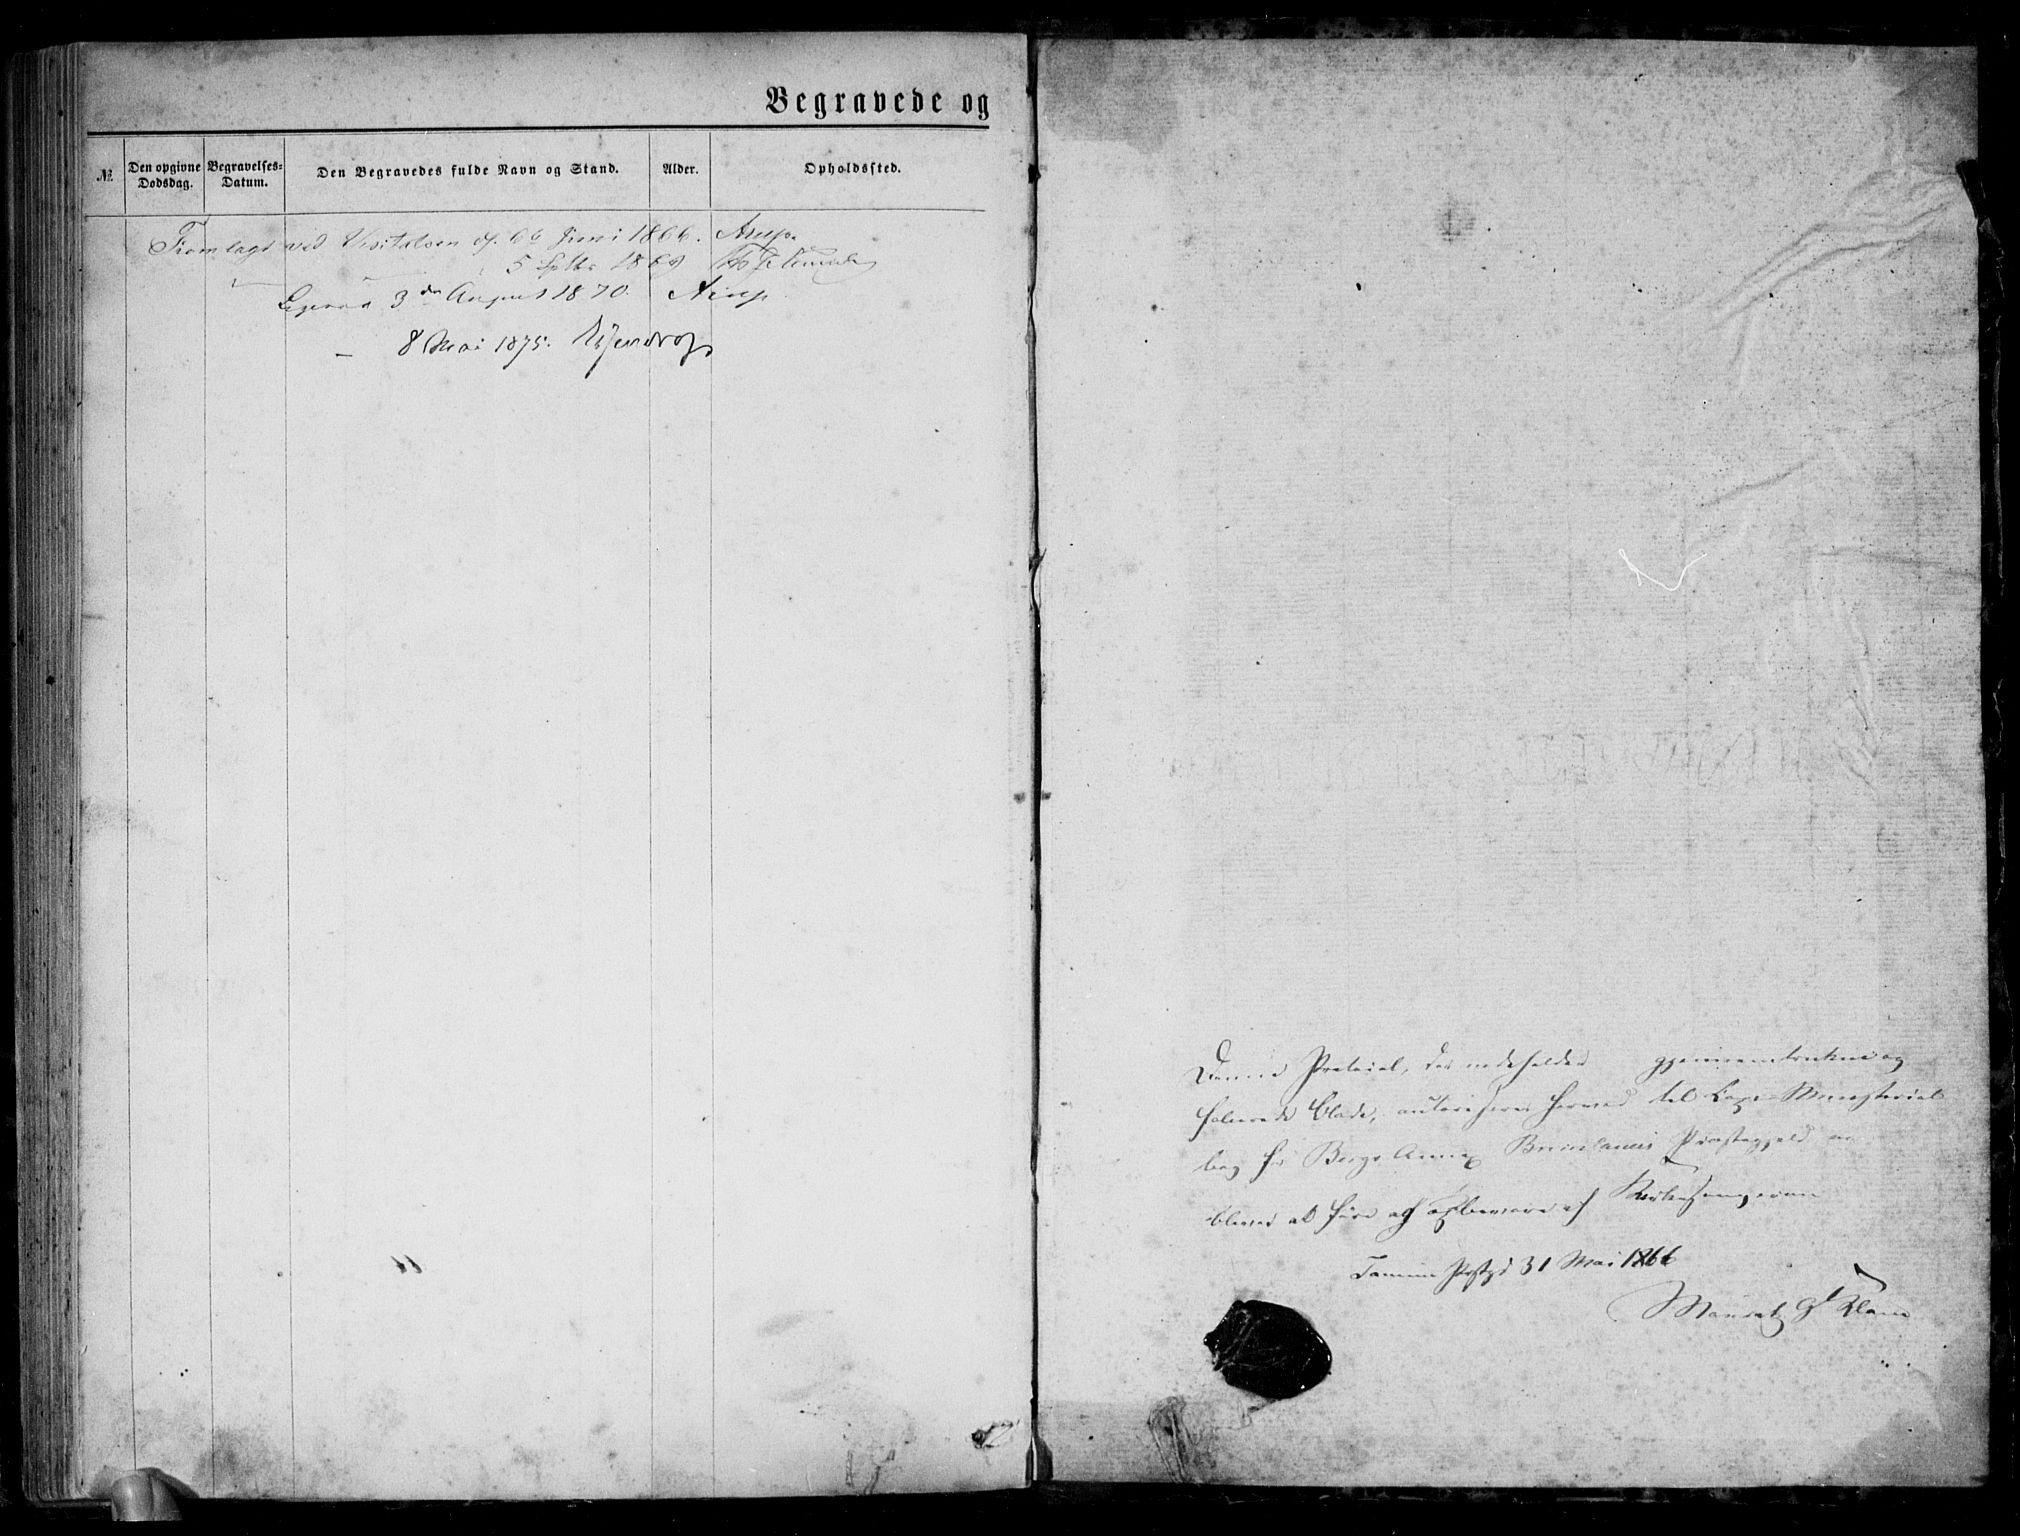 Begravede og
№.
Den opgivne Dødsdag.
Begravelses-Datum.
Den Begravedes fulde Navn og Stand.
Alder.
Opholdssted.
Fremlagt ved Visitatsen d. 6te Juni 1866. Arup.
5 Septbr 1868
Ligesaa 3die August 1870. Arup
— 8 Mai 1875.
Denne Protocol, der indeholder gjennemtrukne og
folierede Blade, autoriseres herved til Copie Ministerial
bog for Bergs Annex Brunlanes Præstegjeld
at føre og opbevare af Kirkesangeren
31 Mai 1866